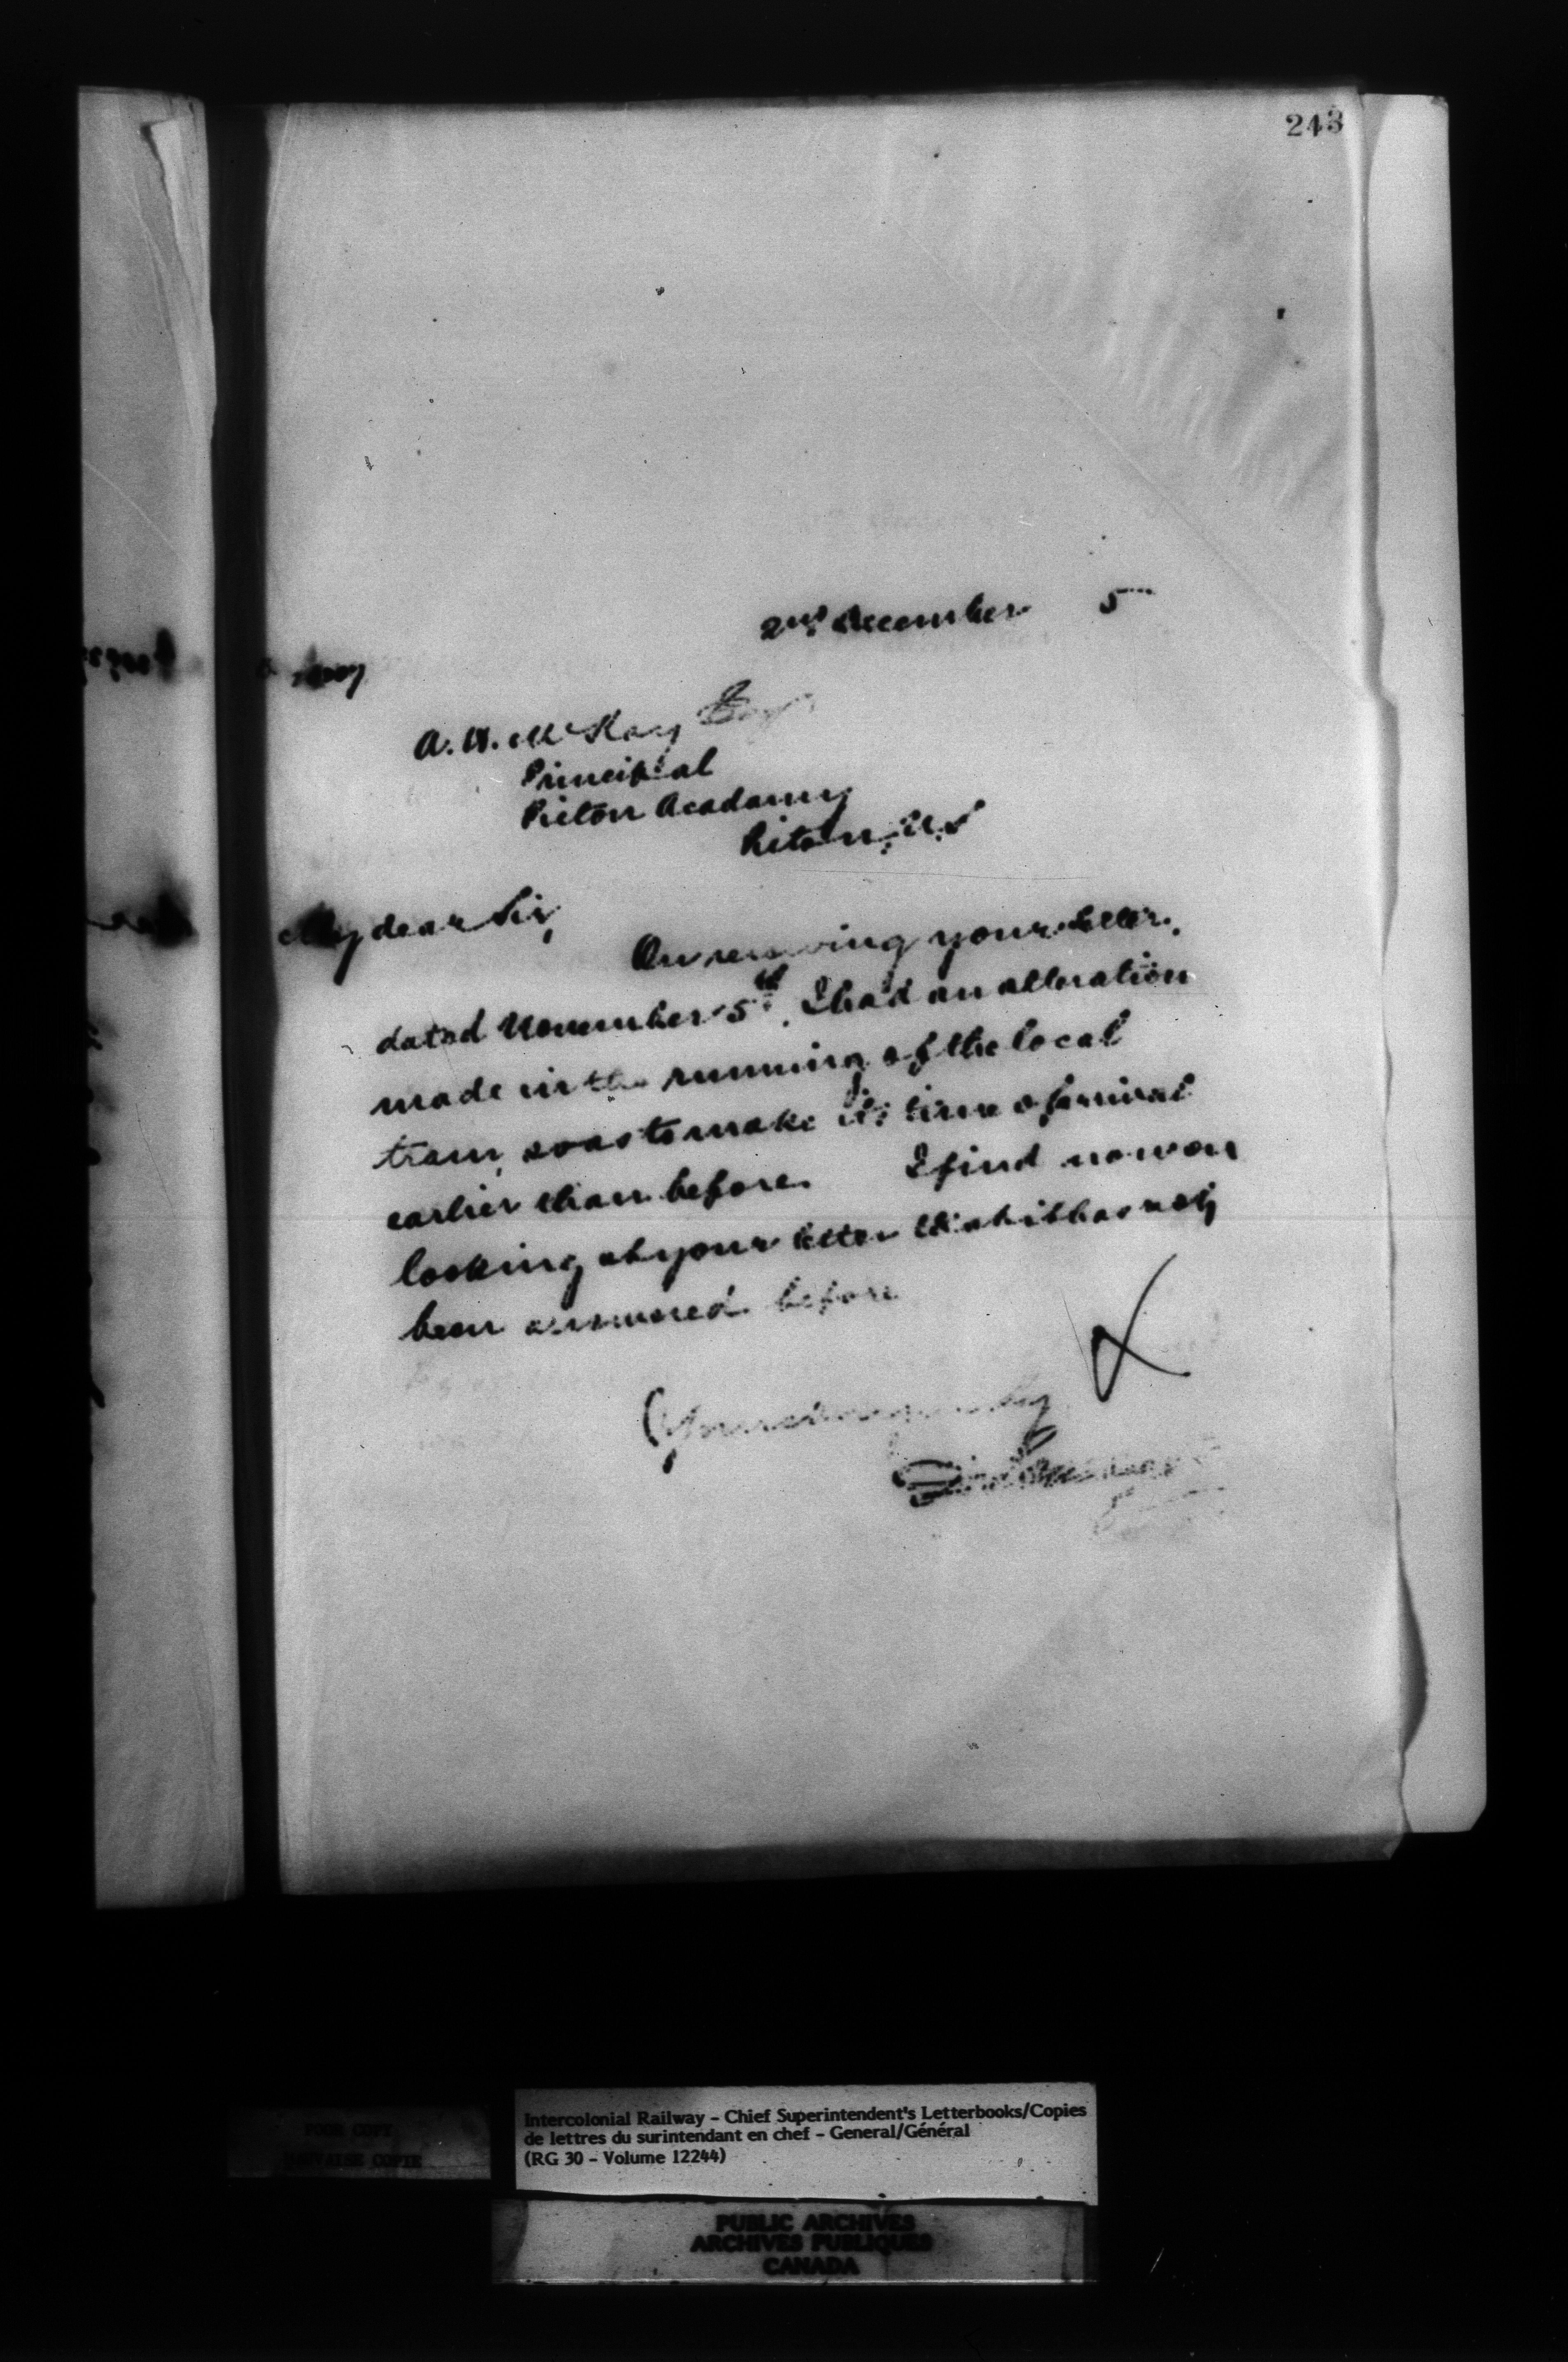 243
2nd December 5
A. H. McKay Esq
Principal
Pictou Academy
Pictou, N.S
My dear Sir,
On receiving your letter,
dated November 5th, I had an alteration
made in the running of the local
train, so as to make its time of arrival
earlier than before. I find now on
looking at your letter that it has not
been answered before
Yours
Intercolonial Railway – Chief Superintendent's Letterbooks/Copies
de lettres du surintendant en chef – General/Général
(RG 30 – Volume 12244)
POOR COPY
MAUVAISE COPIE
PUBLIC ARCHIVES
ARCHIVES PUBLIQUES
CANADA